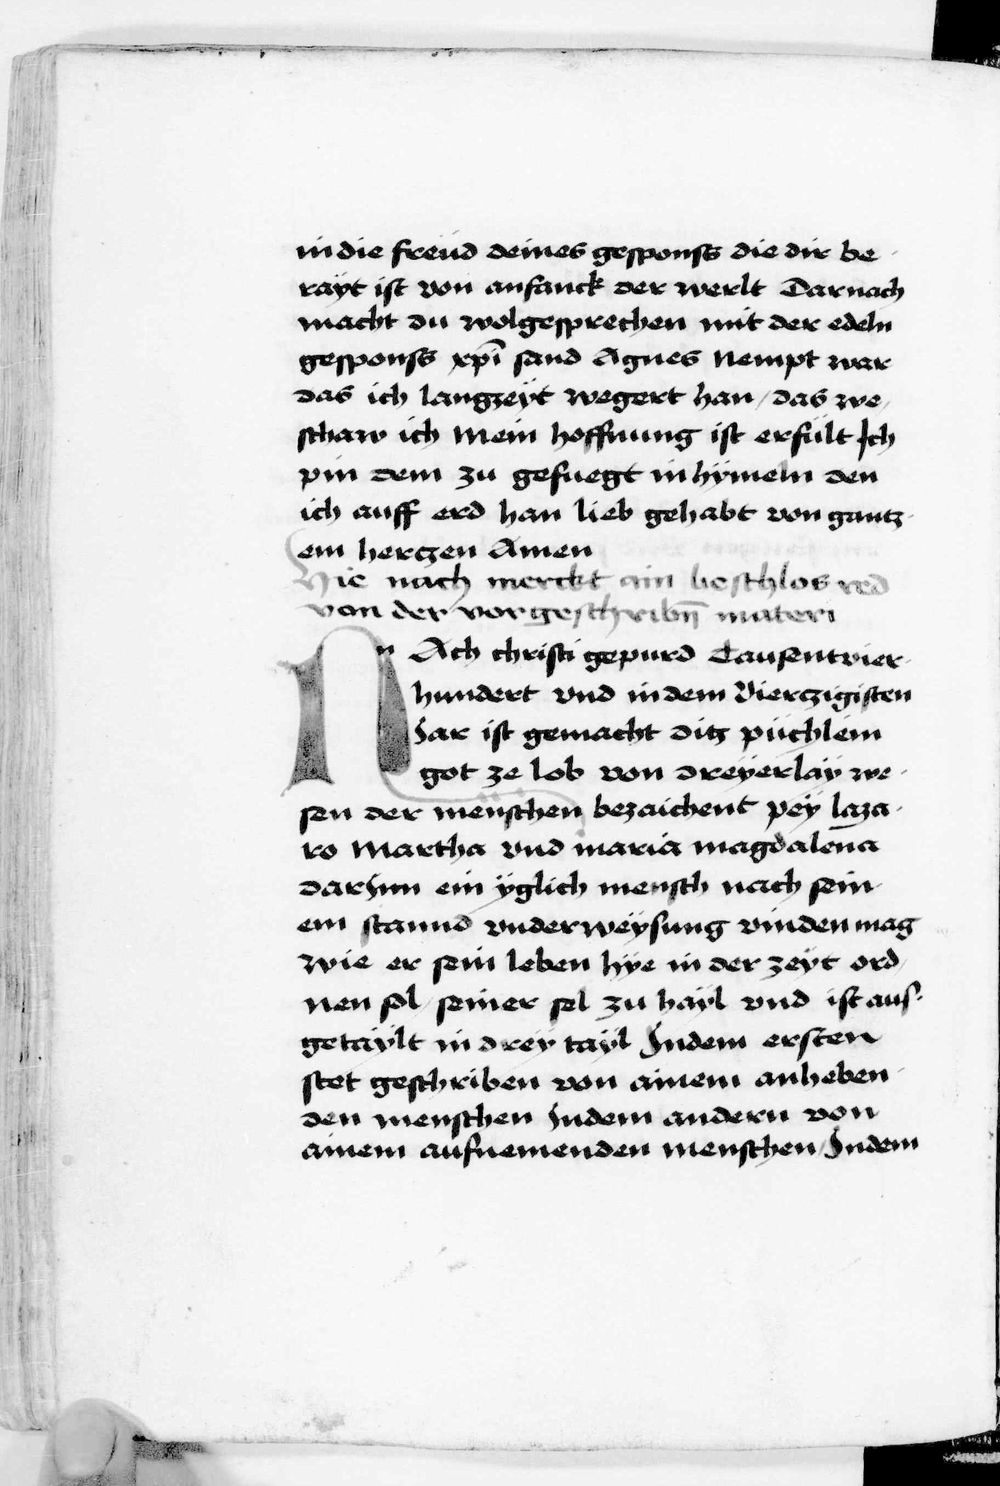 in die freüd deines gesponss die dir be-
rayt ist von anfanck der werlt Darnach
macht du wolgesprechen mit der edeln
gesponss xpī sand Agnes Nempt war
das ich langzeyt wegert han / das we/
schaw ich Mein hoffnung ist erfült Ich
pin dem zu gefuegt in hymeln den
ich auff erd han lieb gehabt von gantz-
em herczen Amen
Hie nach merckt ain beschlos red
von der vorgeschribn̄ materi
NAch christi gepurd Tausent vier-
hundert vnd in dem Vierczigisten
Jar ist gemacht ditz püchlein
got ze lob von dreyerlay we-
sen der menschen bezaichent pey laza-
ro Martha vnd maria magdalena
darjnn ein yglich mensch nach sein-
em stannd vnderweysung vinden mag
wie er sein leben hye in der zeyt ord/
nen sol / seiner sel zu hayl vnd ist aus-
getaylt in drey tayl Jndem ersten
stet geschriben von ainem anheben-
den menschen Jndem andern von
ainem aufnemenden menschen / Jndem